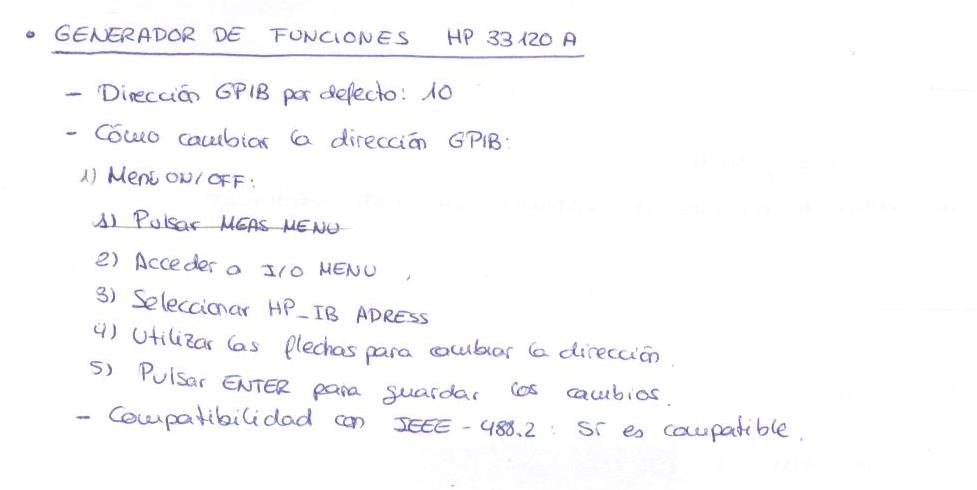 • GENERADOR DE FUNCIONES HP 33120A
- Dirección GPIB por defecto: 10
- Cómo cambiar la dirección GPIB:
1) Menú ON/OFF:
1) Pulsar MEAS MENU
2) Acceder a I/O MENU
3) Seleccionar HP_IB ADRESS
4) Utilizar las flechas para cambiar la dirección.
5) Pulsar ENTER para guardar los cambios.
- Compatibilidad con IEEE-488.2: Sí es compatible.